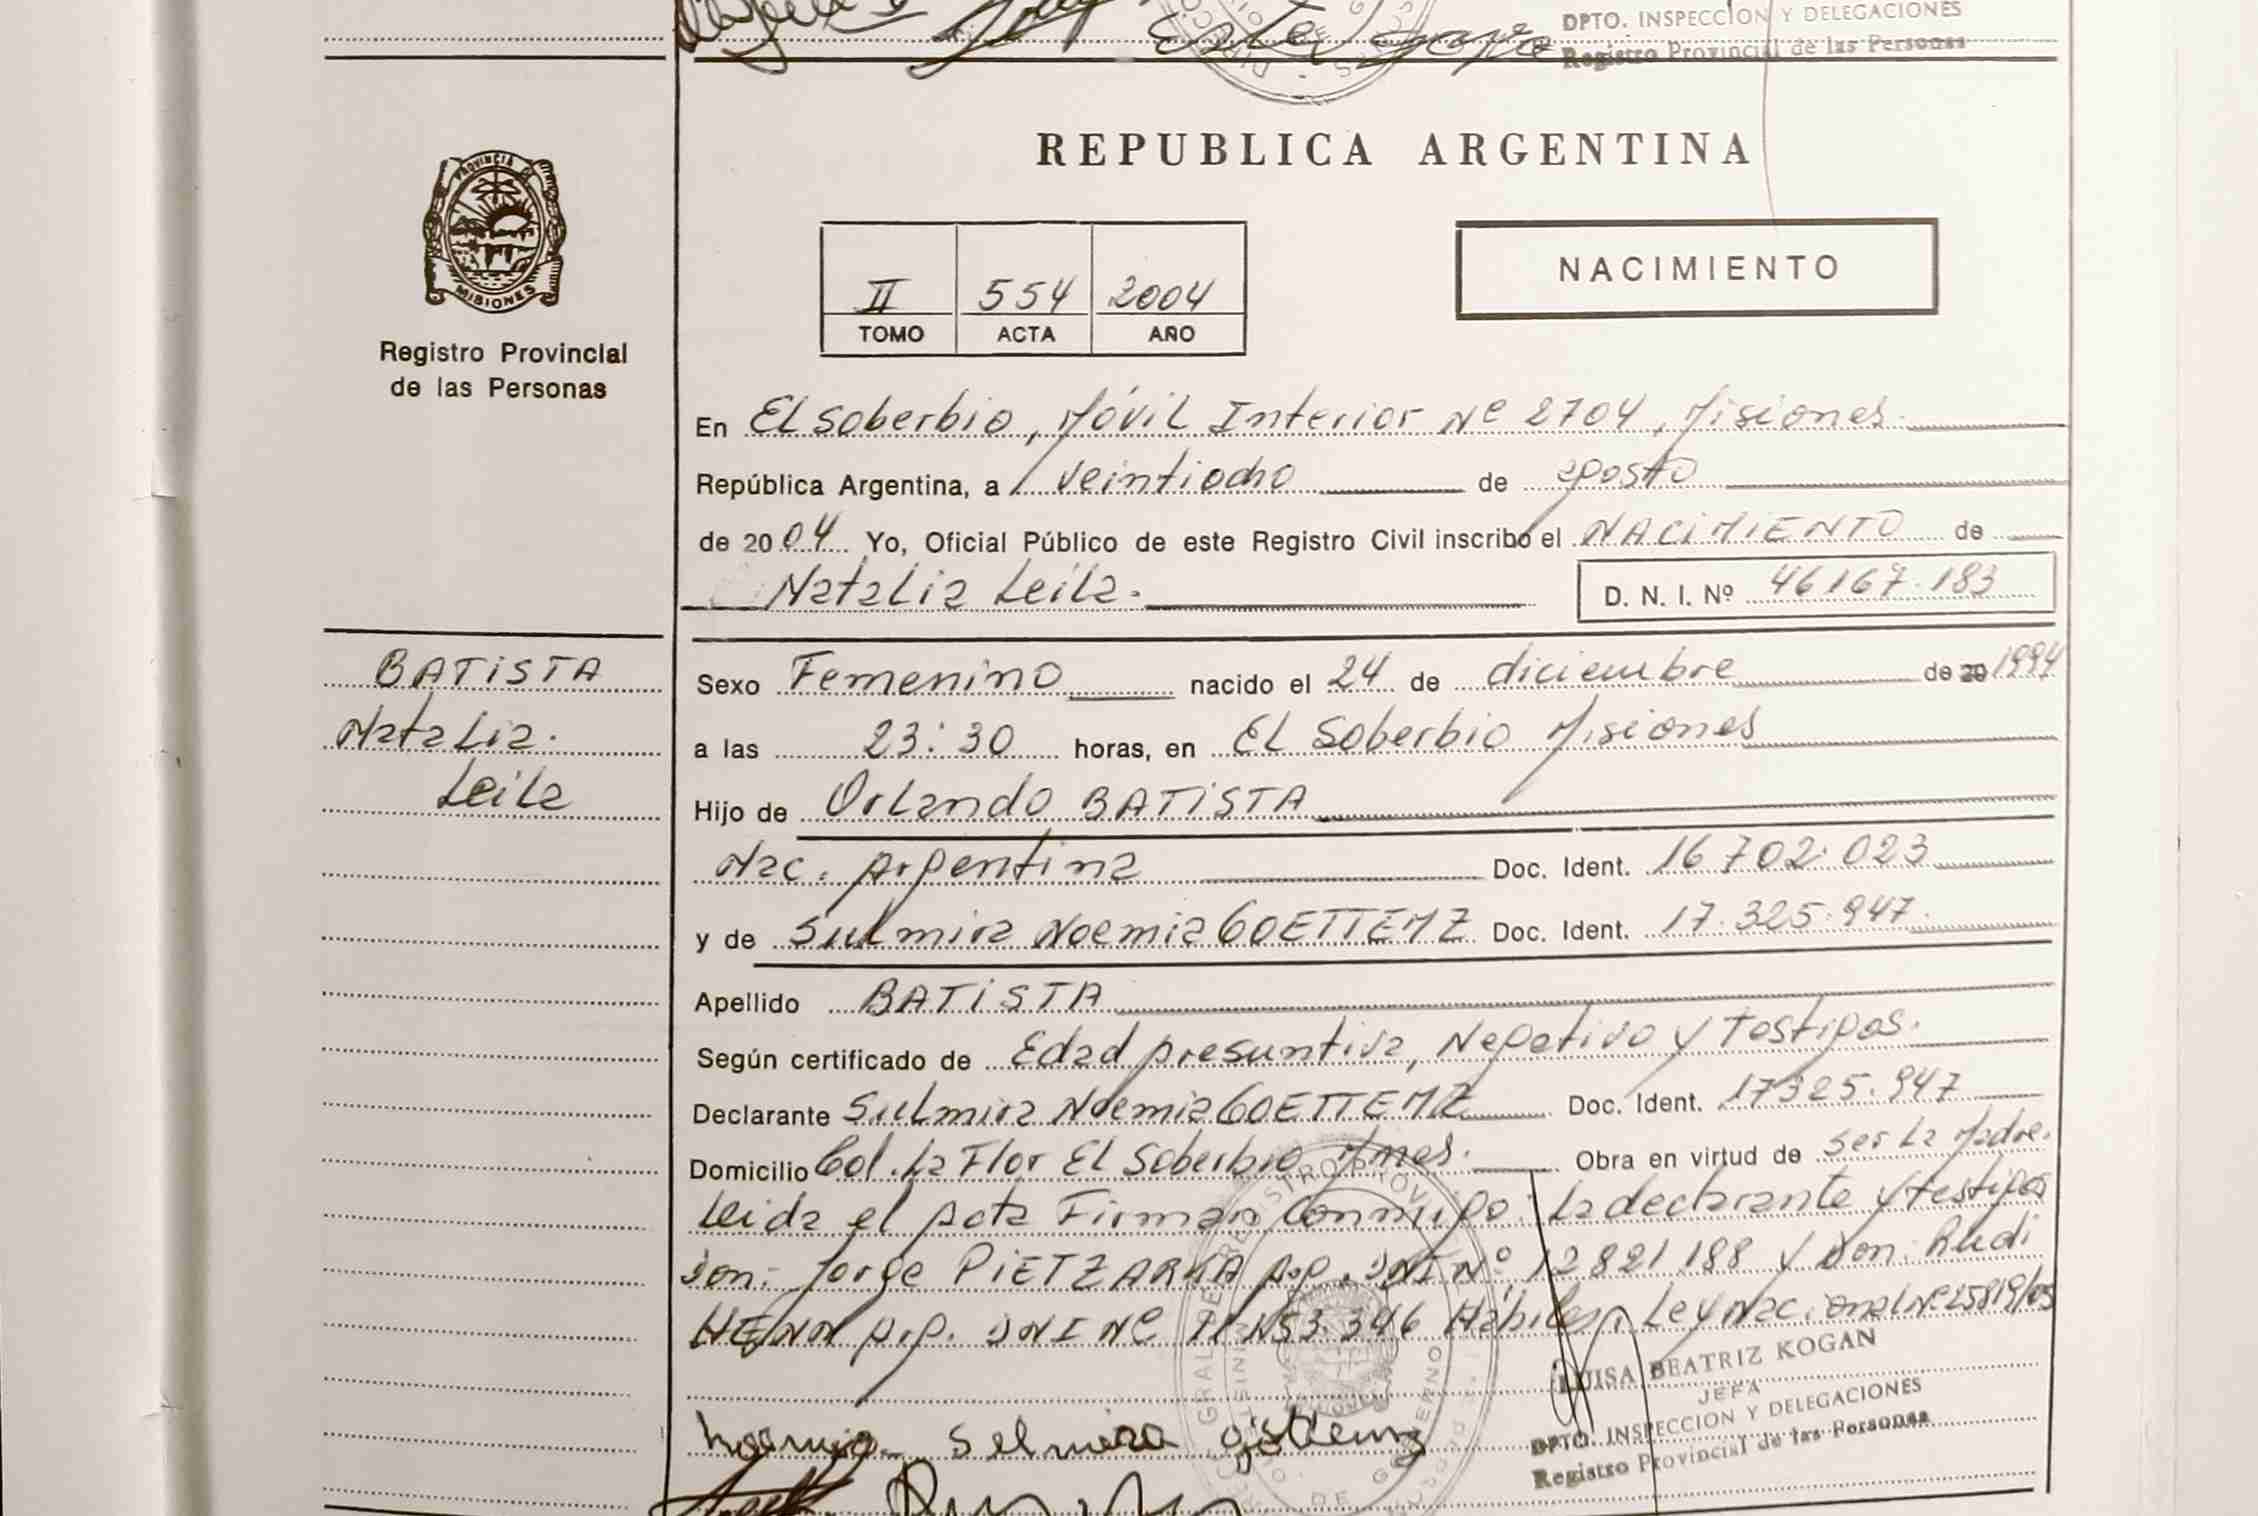 DPTO. INSPECCION Y DELEGACIONES
Registro Provincial de las Personas
PROVINCIA DE
MISIONES
Registro Provincial
de las Personas
REPUBLICA ARGENTINA
II 554 2004
TOMO ACTA AÑO
NACIMIENTO
En El Soberbio, Móvil Interior Nº 2704, Misiones.
República Argentina, a veintiocho de agosto
de 2004 Yo, Oficial Público de este Registro Civil inscribo el NACIMIENTO de
Natalia Leila. D. N. I. Nº 46167.183
BATISTA
Natalia.
Leila
Sexo Femenino nacido el 24 de diciembre de 20 1994
a las 23:30 horas, en El Soberbio Misiones
Hijo de Orlando BATISTA
Nac. Argentina Doc. Ident. 16702.023
y de Sulmira Noemia GOETTEMZ Doc. Ident. 17.325.947.
Apellido BATISTA
Según certificado de Edad presuntiva, Negativo y Testigos.
Declarante Sulmira Noemia GOETTEMZ Doc. Ident. 17325.947
Domicilio Col. La Flor El Soberbio Mnes. Obra en virtud de ser la Madre.
Leida el Acta Firman Conmigo: la declarante y testigos
Don: Jorge PIETZARKA arg. DNI Nº 12821188 y Don: Rudi
HENN arg. DNI Nº 11153.346 Hábiles, Ley Nacional Nº 25819/03
LUISA BEATRIZ KOGAN
JEFA
DPTO. INSPECCION Y DELEGACIONES
Registro Provincial de las Personas